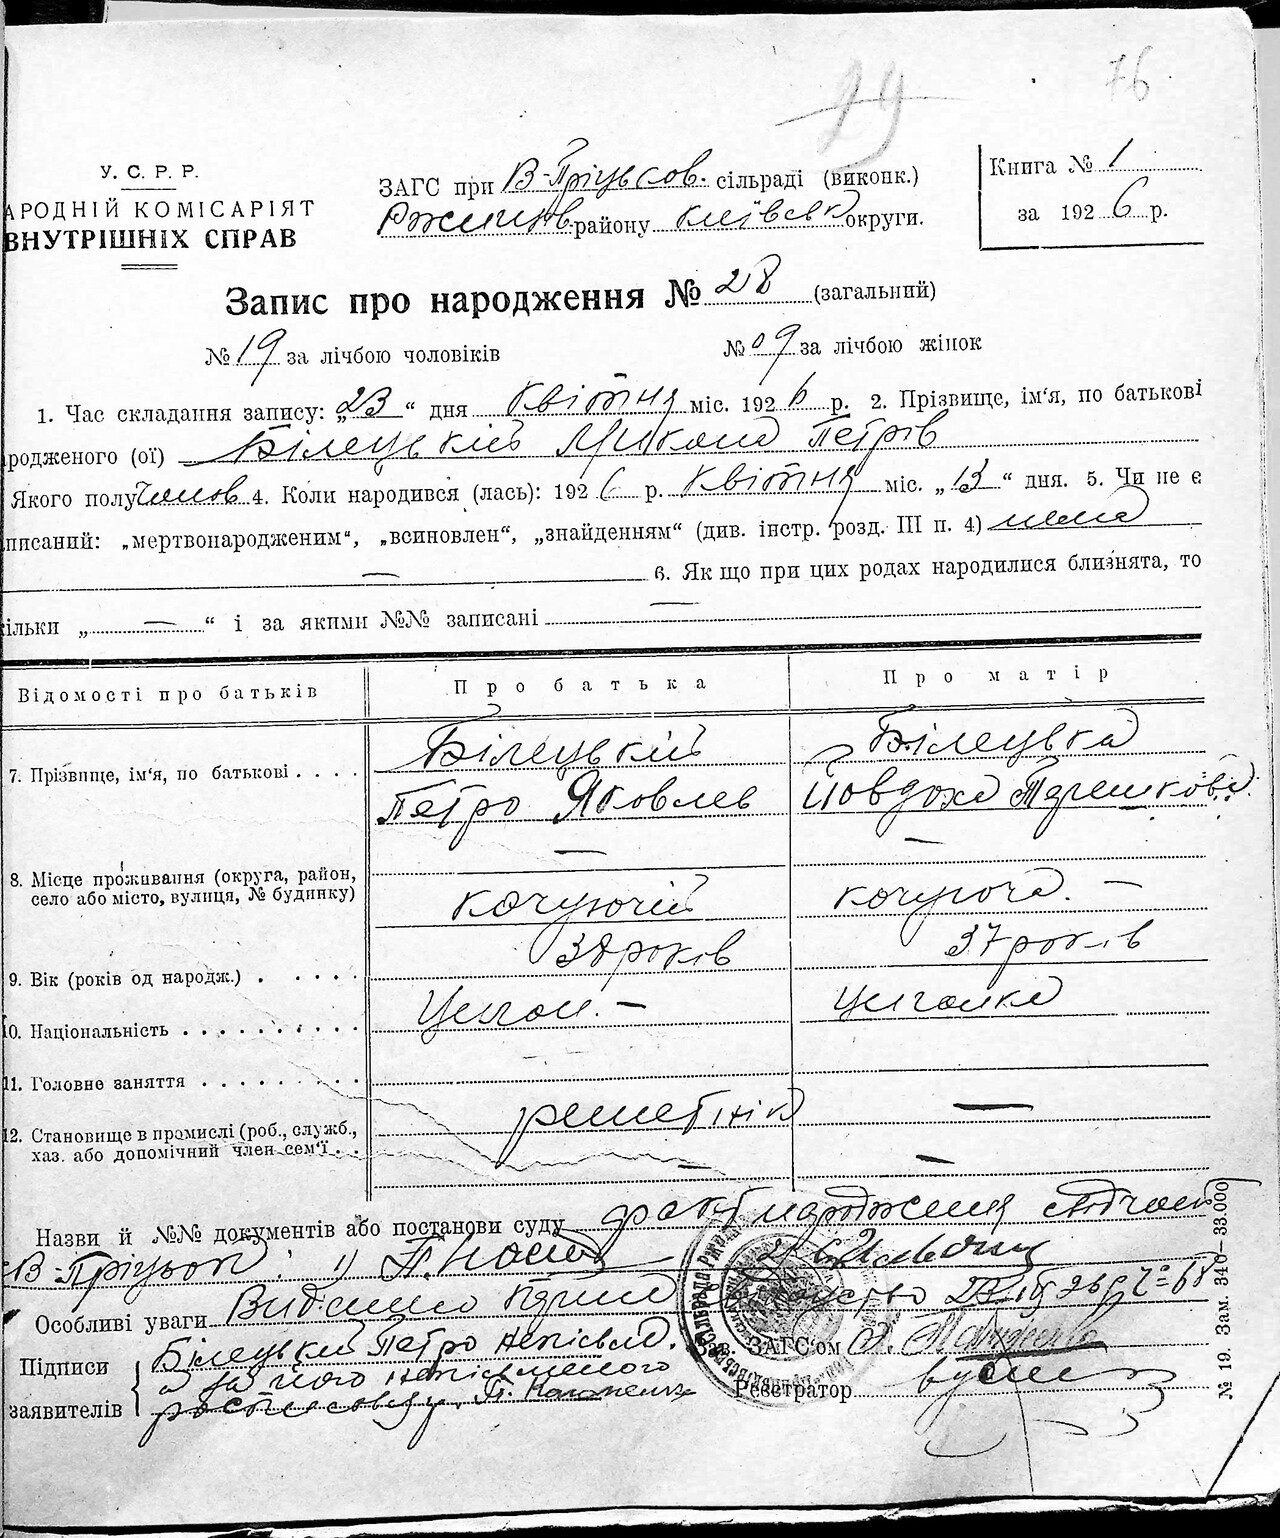 76
У. С. Р. Р.
АРОДНІЙ КОМІСАРІЯТ
ВНУТРІШНІХ СПРАВ
ЗАГС при В-Пріцьков. сільраді (виконк.)
Ржищів. району київськ округи.
Книга № 1
за 1926 р.
Запис про народження № 28 (загальний)
№ 19 за лічбою чоловіків № 09 за лічбою жінок
1. Час складання запису: „23“ дня квітня міс. 1926 р. 2. Прізвище, ім'я, по батькові
родженого (ої) Білецький Микола Петрів
Якого полу чолов 4. Коли народився (лась): 1926 р. квітня міс. „13“ дня. 5. Чи не є
писаний: „мертвонародженим“, „всиновлен“, „знайденням“ (див. інстр. розд. III п. 4) нема
— 6. Як що при цих родах народилися близнята, то
ільки „ — “ і за якими №№ записані —
Відомості про батьків Про батька Про матір
7. Прізвище, ім'я, по батькові . . . . Білецький Білецька
Петро Яковлев Йовдоха Терешкова
8. Місце проживання (округа, район, село або місто, вулиця, № будинку) — —
кочуючий кочуюча. —
9. Вік (років од народж.) . . . . . 38 років 37 років
10. Національність . . . . . . . . . . Циган. — Циганка
11. Головне заняття . . . . . . . . .
12. Становище в промислі (роб., служб., хаз. або допомічний член сем'ї . . решетнік —
— —
Назви й №№ документів або постанови суду факт народження
В-Пріцьок : 1) П. 2)
Особливі уваги Видано 68
Підписи заявителів Білецький Петро неписьм.
а за його неписьменого
росписовсь
Зав. ЗАГС'ом
Реєстратор
№ 19. Зам. 346—33.000